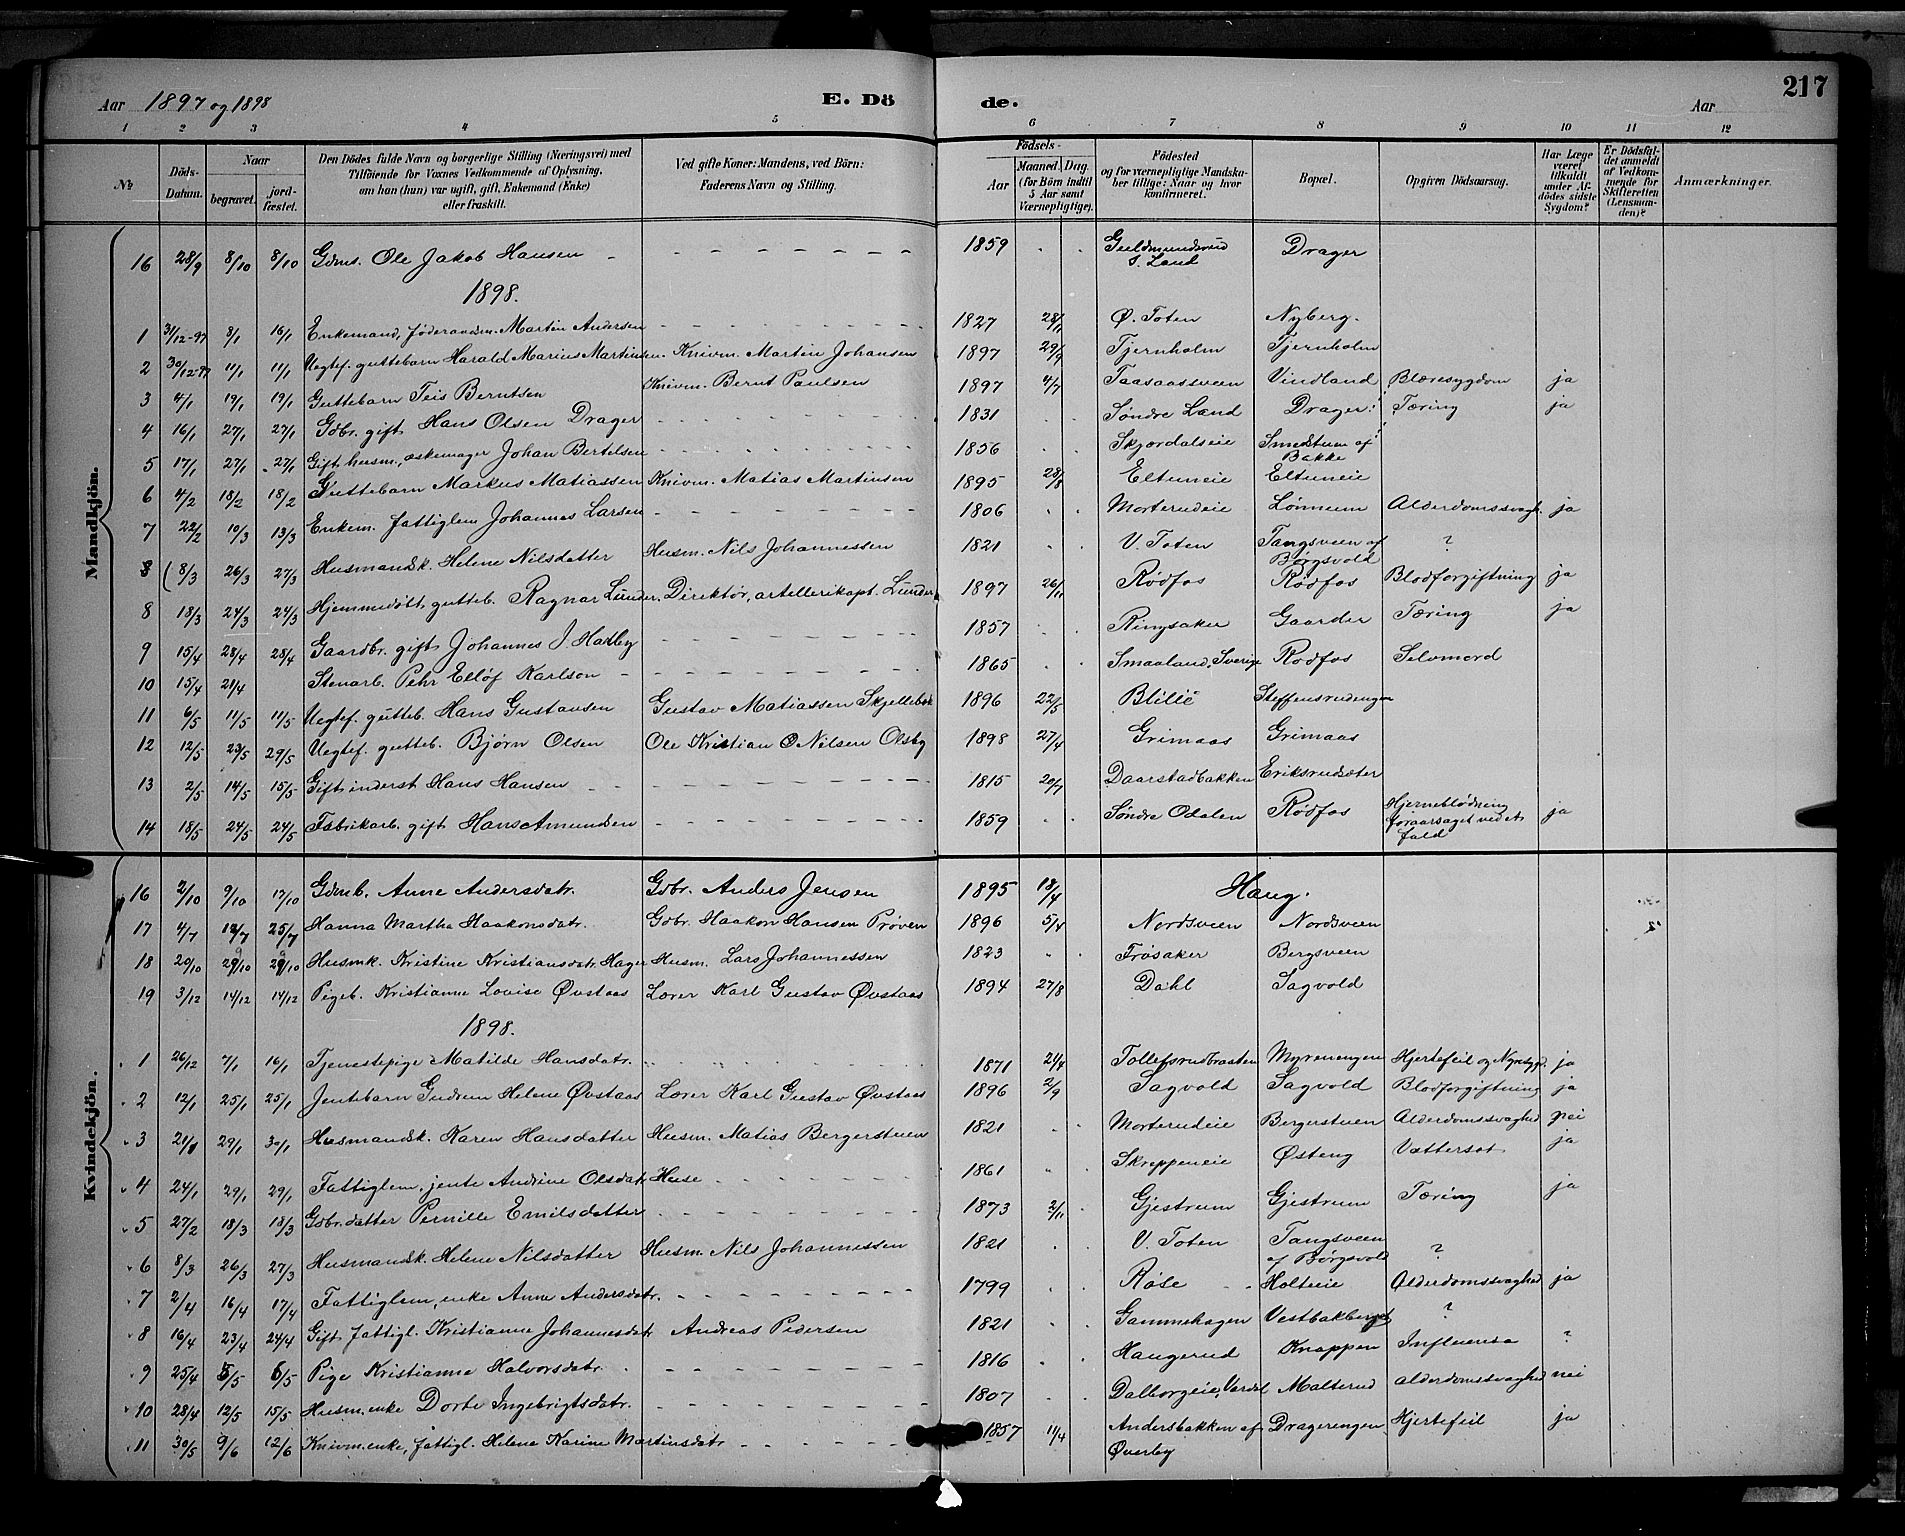 Aar 1897 og 1898 E. Dö de. Aar 217
1 2 3 4 5 6 7 8 9 10 11 12
№ Döds-Datum. Naar begravet. jordfæstet. Den Dödes fulde Navn og borgerlige Stilling (Næringsvei) med Tilföiende for Voxnes Vedkommende af Oplysning, om han (hun) var ugift, gift, Enkemand (Enke) eller fraskilt. Ved gifte Koner: Mandens, ved Börn: Faderens Navn og Stilling. Födsels- Aar Maaned. Dag. (for Börn indtil 5 Aar samt Værnepligtige). Födested og for værnepligtige Mandskaber tillige: Naar og hvor konfirmeret. Bopæl. Opgiven Dödsaarsag. Har Læge været tilkaldt under Afdödes sidste Sygdom? Er Dödsfaldet anmeldt af Vedkommende for Skifteretten (Lensmanden)? Anmærkninger.
Mandkjön.
16 28/9 8/10 8/10 Gdms. Ole Jakob Hansen 1859 Guldmundsrud S. Land Drager
1898.
1 31/12-97 8/1 16/1 Enkemand, föderaadsm. Martin Andersen 1827 28/11 Ø. Toten Nyberg.
2 30/12-97 11/1 11/1 Uegtef. guttebarn Harald Marius Martinsen. Knivm. Martin Johansen 1897 29/9 Tjernholm Tjernholm
3 4/1 19/1 19/1 Guttebarn Teis Berntsen Knivm. Bernt Paulsen 1897 4/7 Taasaasveen Vindland Blæresygdom ja
4 16/1 27/1 27/1 Gdbr. gift Hans Olsen Drager 1831 Søndre Land Drager Tæring ja
5 17/1 27/1 27/1 Gift husm., æskemager Johan Bertelsen 1856 Skjordalseie Smedstuen af Bakke
6 4/2 18/2 18/2 Guttebarn Markus Matiassen Knivm. Matias Martinsen 1895 28/8 Eltuneie Eltuneie
7 22/2 10/3 13/3 Enkem. fattiglem Johannes Larsen 1806 Morterudeie Lønneim Alderdomssvagh. ja
8 (8/3 26/3 27/3 Husmandsk. Helene Nilsdatter Husm. Nils Johannessen 1821 V. Toten Tangsveen af Børgsvold ?
8 18/3 24/3 24/3 Hjemmedöbt gutteb. Ragnar Lunder. Direktør, artellerikapt. Lunder 1897 26/11 Rødfos Rødfos Blodforgiftning ja
9 15/4 28/4 28/4 Gaardbr. gift Johannes J. Hatlby 1857 Ringsaker Gaarder Tæring ja
10 15/4 21/4 Stenarb. Pehr Ellöf Karlson 1865 Smaaland, Sverige Rødfos Selvmord
11 6/5 11/5 11/5 Uegtef. gutteb. Hans Gustavsen Gustav Matiassen Skjellebæk 1896 22/5 Blilie Steffensrudengen
12 12/5 23/5 29/5 Uegtef. gutteb. Bjørn Olsen Ole Kristian O Nilsen Olsby 1898 27/4 Grimaas Grimaas
13 2/5 14/5 15/5 Gift inderst Hans Hansen 1815 20/7 Daarstadbakken Eriksrudsæter
14 18/5 24/5 24/5 Fabrikarb. gift Hans Amundsen 1859 Søndre Odalen Rødfos Hjerneblødning foraarsaget ved et fald ja
Kvindekjön.
16 2/10 9/10 17/10 Gdmb. Anne Andersdatr. Gdbr. Anders Jensen 1895 18/4 Haug.
17 4/7 12/7 25/7 Hanna Martha Haakonsdatr. Gdbr. Haakon Hansen Prøven 1896 5/4 Nordsveen Nordsveen
18 20/10 29/10 29/10 Husmk. Kristine Kristiansdatr. Hager Husm. Lars Johannessen 1823 Frøsaker Bergsveen
19 3/12 14/12 14/12 Pigeb. Kristianne Lovise Øvstaas Lærer Karl Gustav Øvstaas 1894 27/8 Dahl Sagvold
1898.
1 26/12 7/1 16/1 Tjenestepige Matilde Hansdatr. 1871 21/4 Tollefsrudbraaten Myrenengen Hjertefeil og Nyresygd. ja
2 12/1 25/1 25/1 Jentebarn Gudrun Helene Øvstaas Lærer Karl Gustav Øvstaas 1896 2/9 Sagvold Sagvold Blodforgiftning ja
3 21/1 29/1 30/1 Husmandsk. Karen Hansdatter Husm. Matias Bergerstuen 1821 Morterudeie Bergerstuen Alderdomssvaghed nei
4 24/1 29/1 29/1 Fattiglem, jente Andrine Olsdatr. Huse 1861 Skreppeneie Østeng Vattersot ja
5 27/2 18/3 18/3 Gdbr. datter Pernille Emilsdatter 1873 2/11 Gjestrum Gjestrum Tæring ja
6 8/3 26/3 27/3 Husmandsk. Helene Nilsdatter Husm. Nils Johannessen 1821 V. Toten Tangsveen af Børgsvold ?
7 2/4 16/4 17/4 Fattiglem, enke Anne Andersdatr. 1799 Røise Holteie Alderdomssvaghed ja
8 16/4 23/4 24/4 Gift fattigl. Kristianne Johannesdatr Andreas Pedersen 1821 Gammehagen Vestbakberget ?
9 25/4 5/5 6/5 Pige Kristianne Halvorsdatr. 1816 Haugerud Knappen Influensa ?
10 28/4 12/5 15/5 Husm. enke Dorte Ingebrigtsdatr. 1807 Dalborgeie, Vardal Malterud Alderdomssvaghed nei
11 30/5 9/6 12/6 Knivm. enke, fattigl. Helene Karine Martinsdatr 1857 11/4 Andersbakken af Øverby Dragerengen Hjertefeil ja